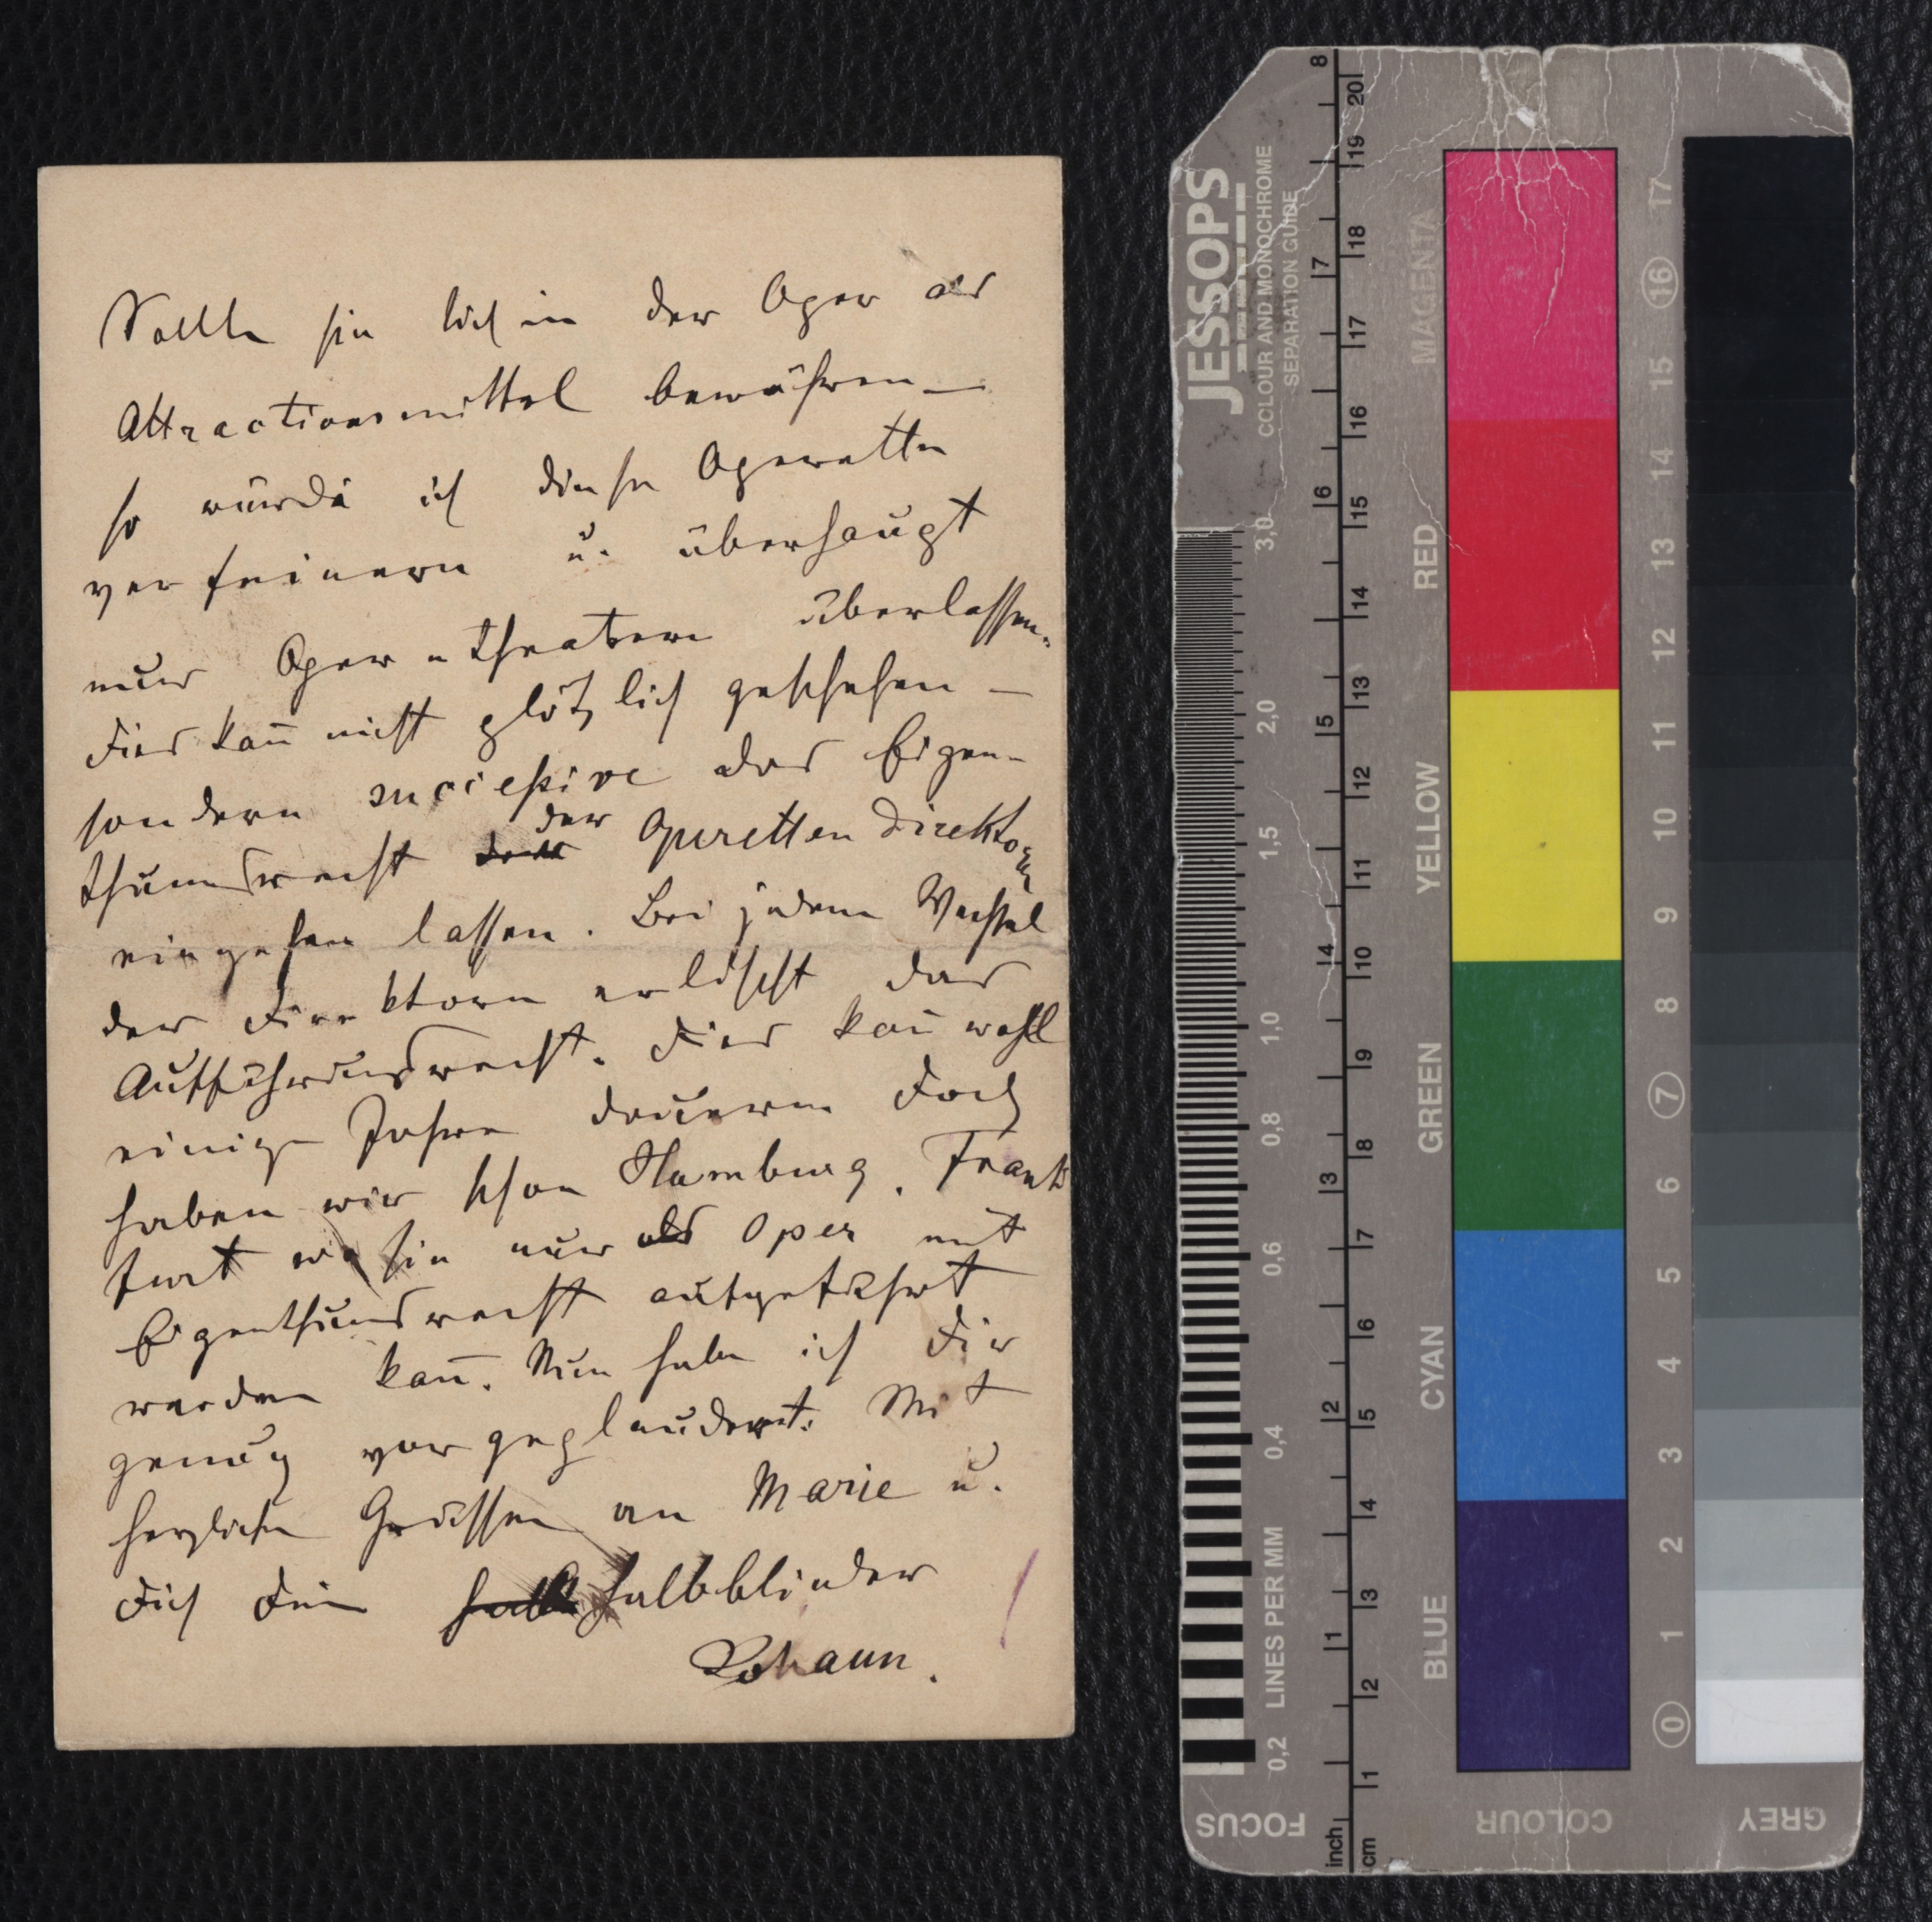 Sollte sie sich in der Oper als
Attractionsmittel bewähren —
so würde ich diese Operette
verfeinern u. überhaupt
nur Operntheatern überlassen.
Dies kan̄ nicht plötzlich geschehen —
sondern successive das Eigen-
thumsrecht der Operetten Direktoren
eingehen lassen. Bei jedem Wechsel
der Direktoren erlischt das
Aufführungsrecht. Dies kan̄ wohl
einige Jahre dauern doch
haben wir schon Hamburg, Frank
furt wo sie nur als Oper mit
Eigenthumsrecht aufgeführt
werden kan̄. Nun habe ich Dir
genug vorgeplaudert. Mit
herzlichen Grüssen an Marie u.
Dich Dein halbblinder
Johann.
JESSOPS
COLOUR AND MONOCHROME
SEPARATION GUIDE
8
7
6
5
4
3
2
1
inch
20
19
18
17
16
15
14
13
12
11
10
9
8
7
6
5
4
3
2
1
cm
3,0
2,0
1,5
1,0
0,8
0,6
0,4
0,2
LINES PER MM
FOCUS
MAGENTA
RED
YELLOW
GREEN
CYAN
BLUE
COLOUR
17
16
15
14
13
12
11
10
9
8
7
6
5
4
3
2
1
0
GREY